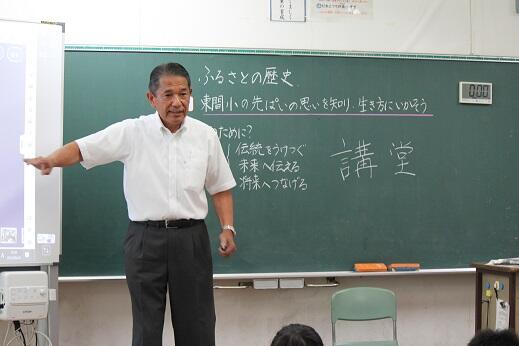 ふるさとの歴史
東間小の先ぱいの思いを知り、生き方にいかそう
のために?
伝統をうけつぐ
未来へ伝える
将来へつなげる
講堂
0:00